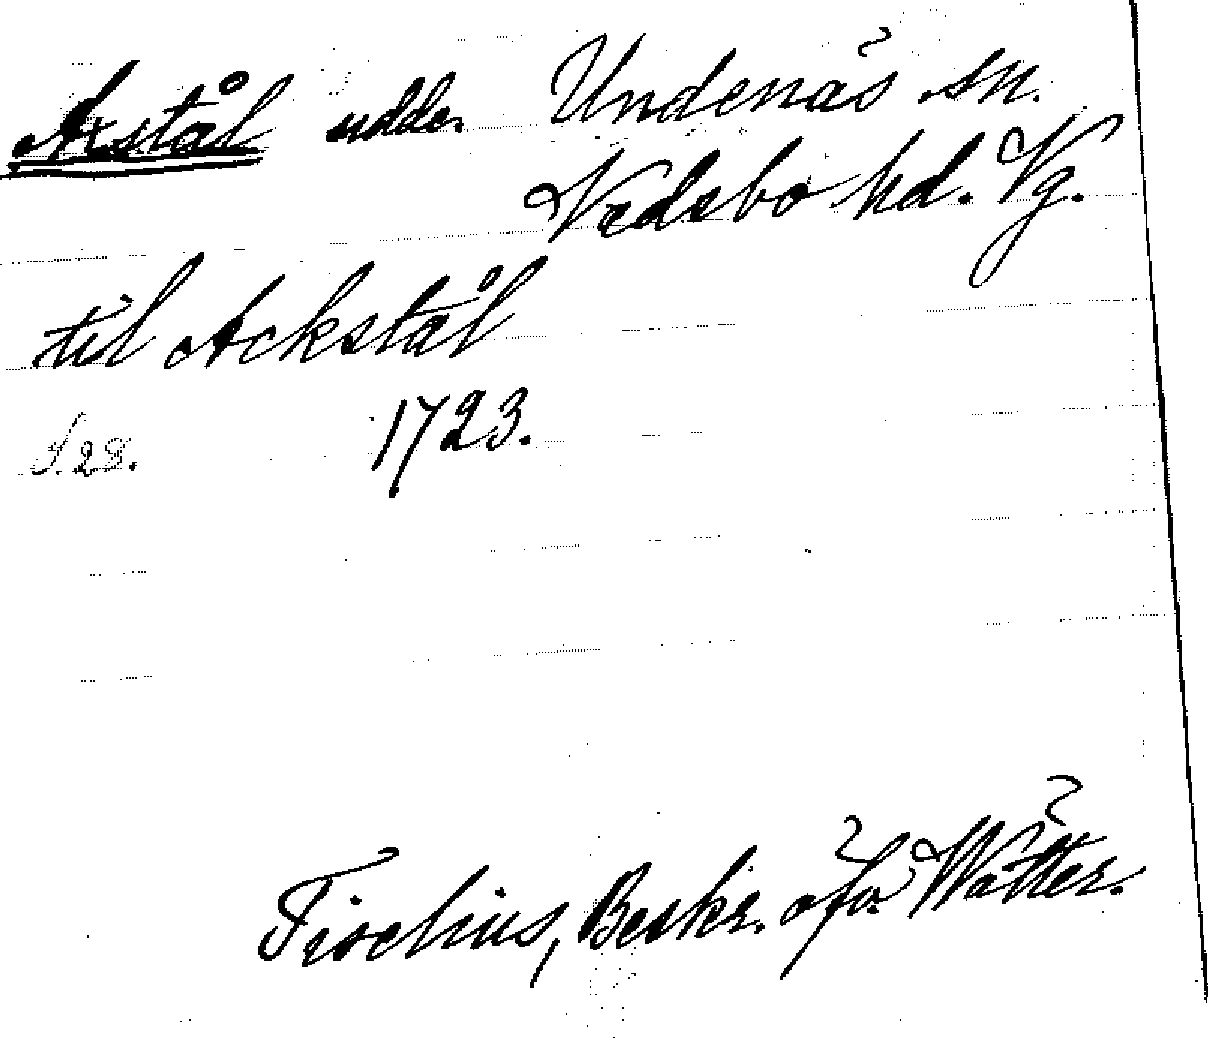 Axstål udde. Undenäs sn.
Vadsbo hd. Vg.
til Ackstål
S. 28. 1723.
Tiselius, Beskr. öfr Wätter.